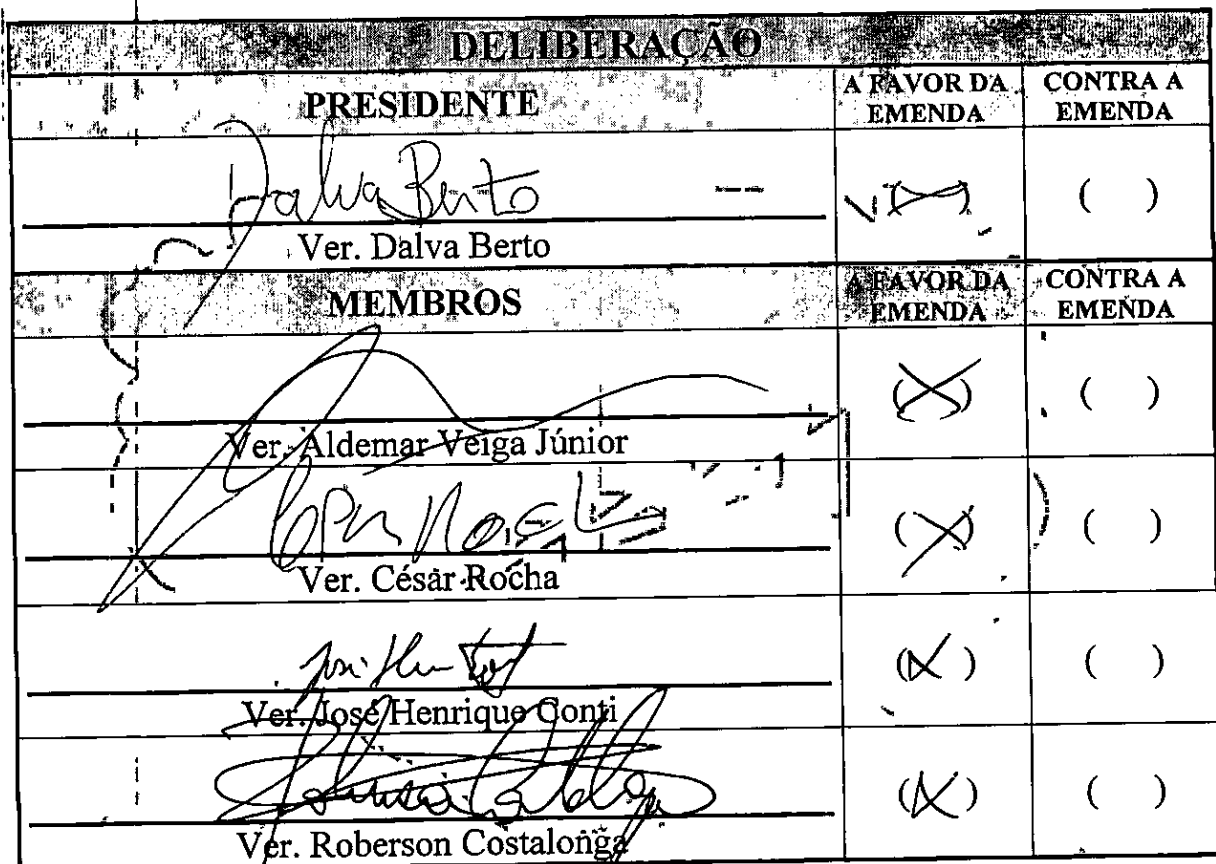 DELIBERAÇÃO
PRESIDENTE
A FAVOR DA EMENDA
CONTRA A EMENDA
Dalva Berto
(X)
( )
Ver. Dalva Berto
MEMBROS
A FAVOR DA EMENDA
CONTRA A EMENDA
(X)
( )
Ver. Aldemar Veiga Júnior
(X)
( )
Ver. César Rocha
(X)
( )
Ver. José Henrique Conti
(X)
( )
Ver. Roberson Costalonga